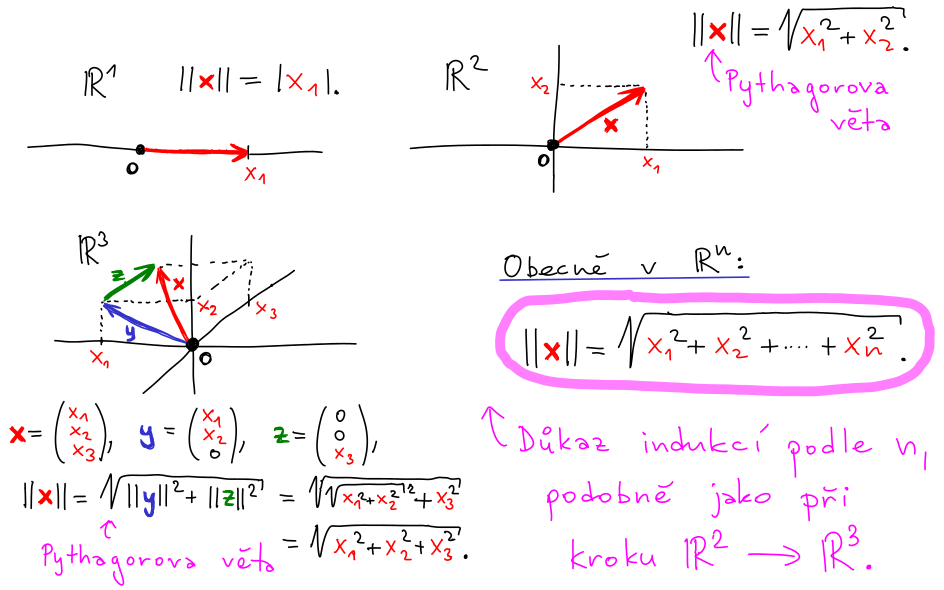 ℝ¹ ||x|| = |x₁|.
0 x₁
ℝ² ||x|| = √(x₁² + x₂²).
Pythagorova
věta
x₂
x
0 x₁
ℝ³
z x
x₂ x₃
y
x₁ 0
x = (x₁ x₂ x₃), y = (x₁ x₂ 0), z = (0 0 x₃),
||x|| = √(||y||² + ||z||²) = √(√(x₁² + x₂²)² + x₃²)
= √(x₁² + x₂² + x₃²).
Pythagorova věta
Obecně v ℝⁿ:
||x|| = √(x₁² + x₂² + ···· + xₙ²).
Důkaz indukcí podle n,
podobně jako při
kroku ℝ² → ℝ³.